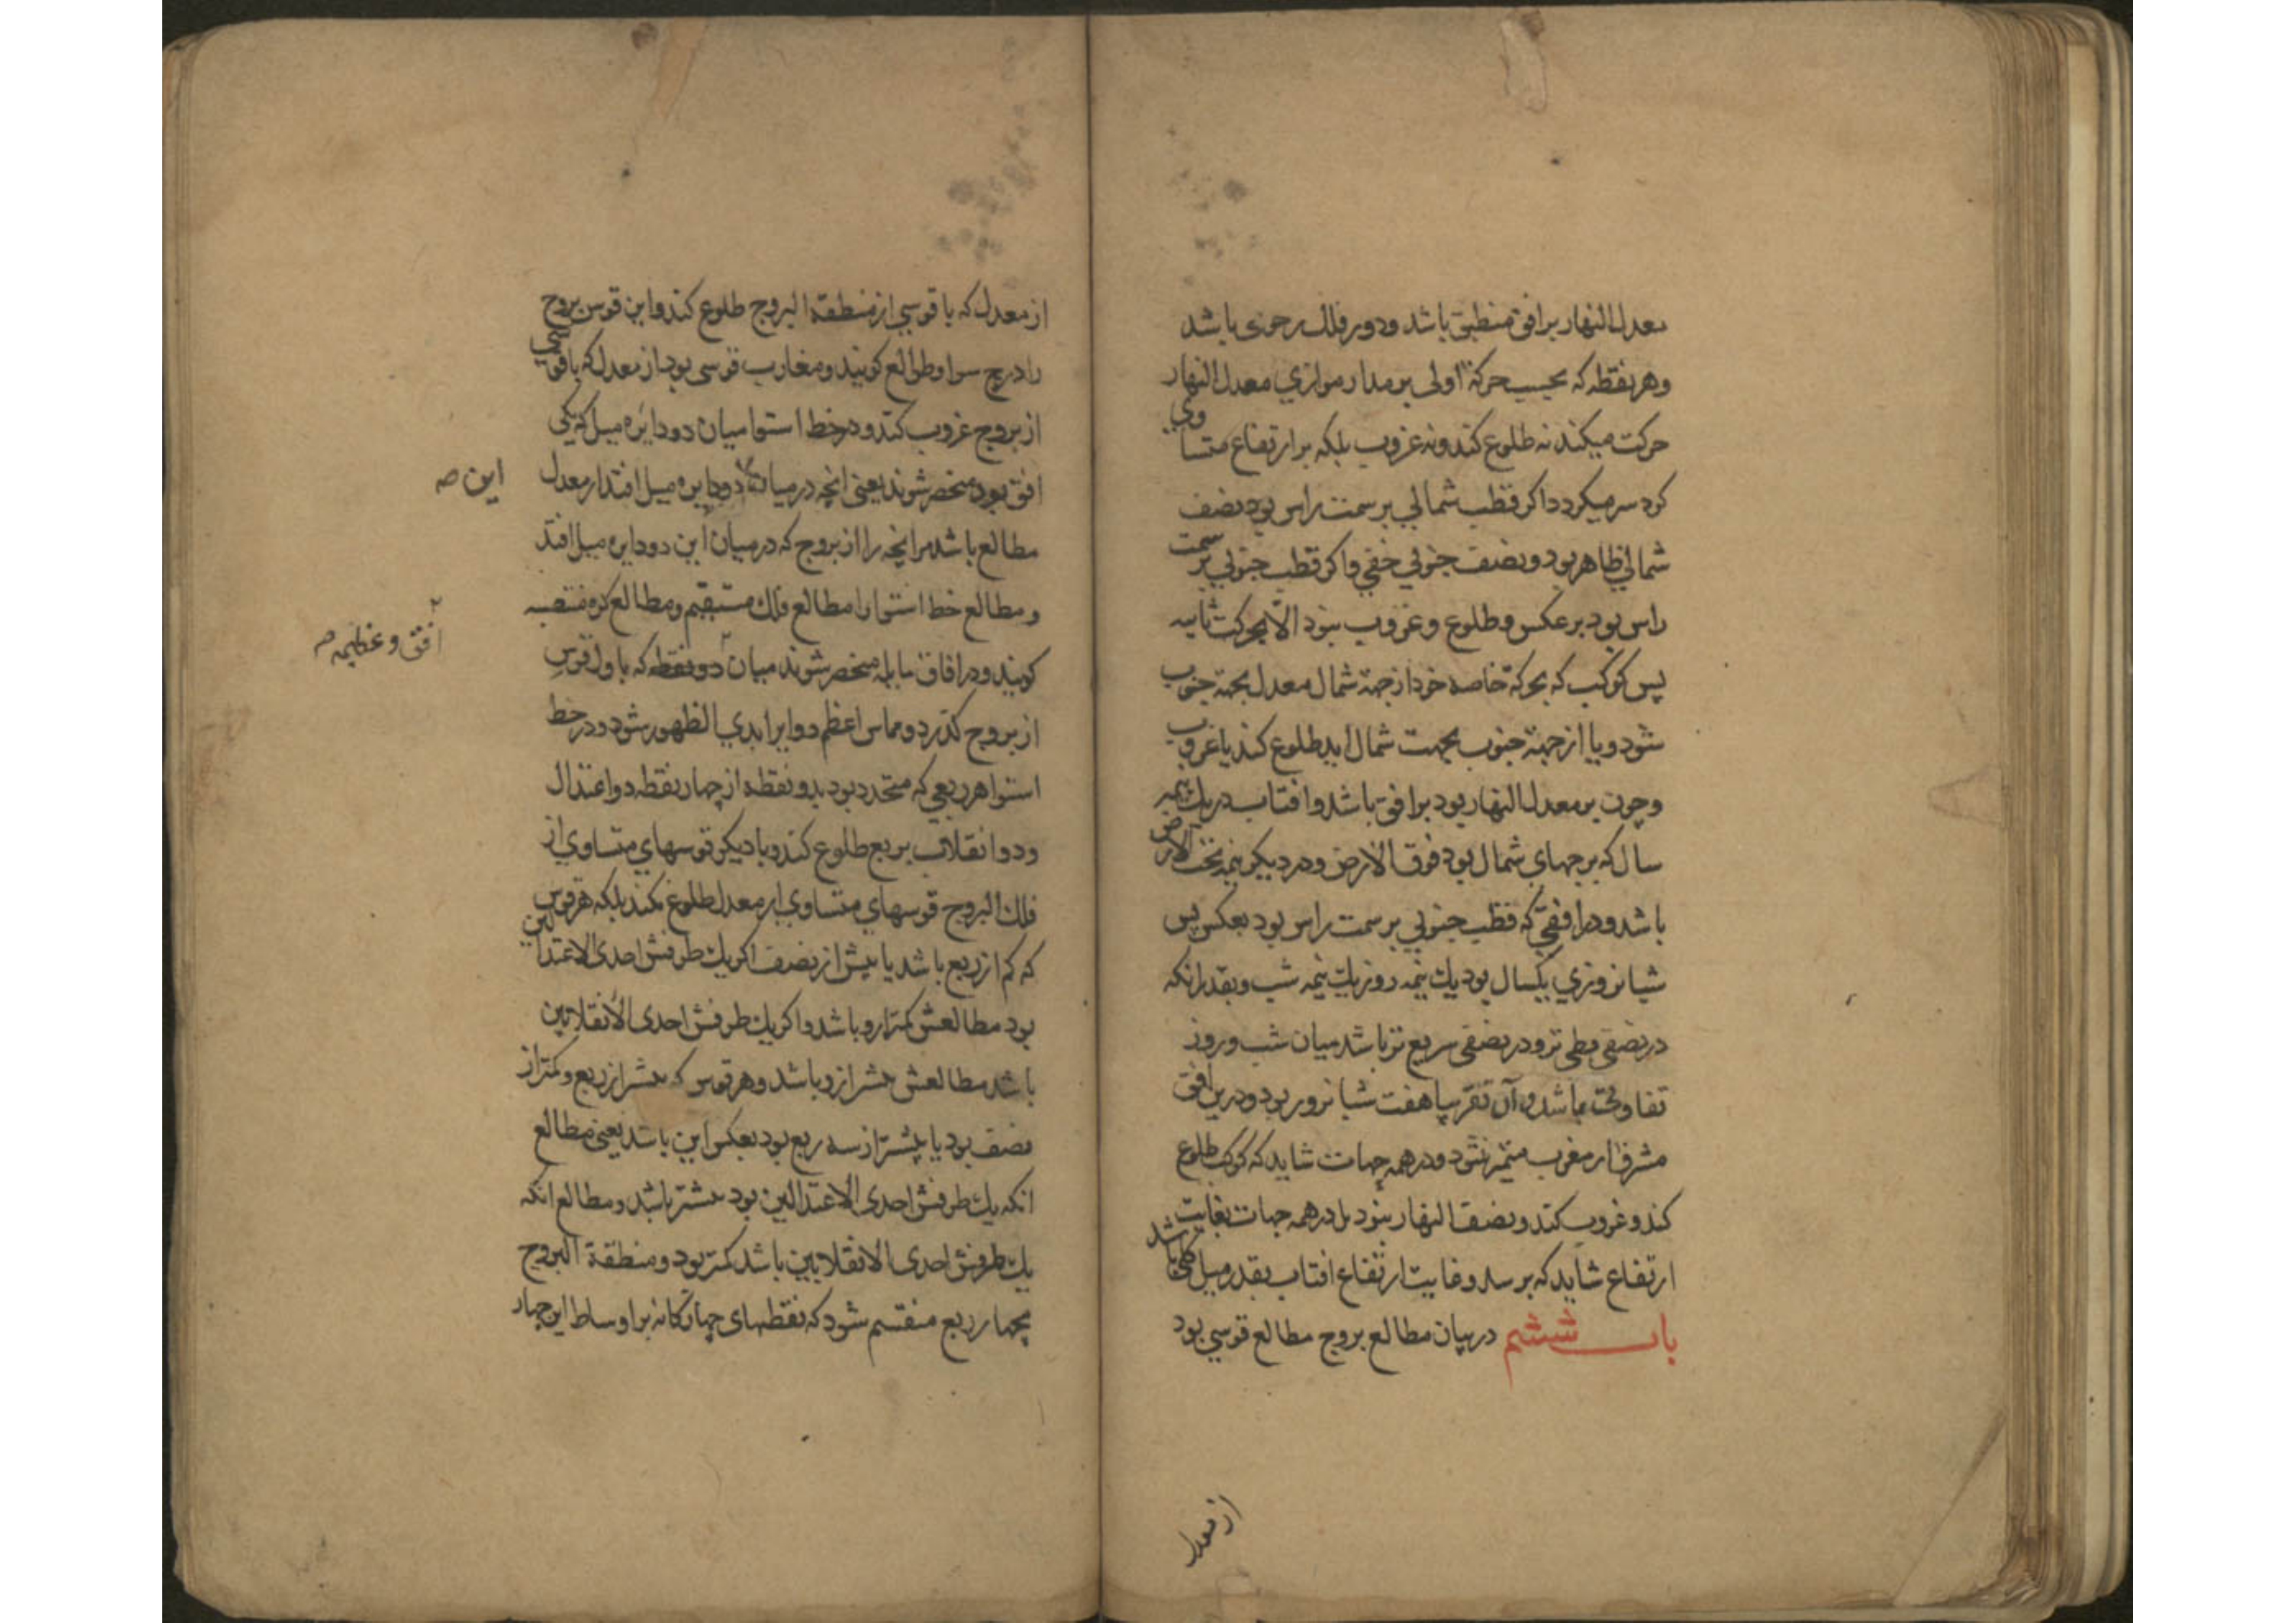 معدل النهار بر افق منطبق باشد و دور فلك رحوی باشد
وهر نقطه که بحسب حرکة اولی بر مدار موازي معدل النهار
حرکت میکند نه طلوع کند و نه غروب بلکه بر ارتفاع متساوي
کرد سر میکردد اکر قطب شمالي بر سمت راس بود نصف
شمالي ظاهر بود و نصف جنوبي خفي و اکر قطب جنوبي بر سمت
راس بود بر عکس و طلوع و غروب نبود الا بحرکت ثانیه
پس کوکب که بحرکة خاصه خود از جهة شمال معدل بجهة جنوب
شود و یا از جهة جنوب بجهت شمال اید طلوع کند یا غروب
و چون بر معدل النهار بود بر افق باشد و افتاب در یك نیمه
سال که برجهاي شمال بود فوق الارض و در دیکر نیمه تحت الارض
باشد و در افقي که قطب جنوبي بر سمت راس بود بعکس پس
شبانروزي یکسال بود یك نیمه روز یك نیمه شب و بقدر انکه
در نصفی بطی تر و در نصفی سریع تر باشد میان شب و روز
تفاوت باشد و آن تقریبا هفت شبانروز بود و درین افق
مشرق از مغرب متمیز نشود و در همه جهات شاید که کوکب طلوع
کند و غروب کند و نصف النهار نبود بل در همه جهات بغایت
ارتفاع شاید که برسد و غایت ارتفاع افتاب بقدر میل کلي باشد
باب ششم در بیان مطالع بروج مطالع قوسي بود
از معدل
از معدل که با قوسي از منطقة البروج طلوع کند و این قوس بروج
را درج سوا و طوالع کویند و مغارب قوسی بود از معدل که با قوسي
از بروج غروب کند و در خط استوا میان دو دایره میل که یکی
افق بود منحصر شوند یعنی انچه در میان دو دایره میل افتد از معدل
این صه
مطالع باشد مر انچه را از بروج که در میان این دو دایره میل افتد
و مطالع خط استوا را مطالع فلك مستقیم و مطالع کره منتصبه
افق و عظیمه صه
کویند و در افاق مایله منحصر شوند میان دو نقطه که باول قوس
از بروج کذرد و مماس اعظم دوایر ابدي الظهور شود و در خط
استوا هر ربعي که متحدد بود بدو نقطه از چهار نقطه دو اعتدال
و دو انقلاب بربع طلوع کند و با دیکر قوسهاي متساوي از
فلك البروج قوسهاي متساوي از معدل طلوع نکند بلکه هر قوس
که کم از ربع باشد یا بیش از نصف اکر یك طرفش احدی الاعتدالین
بود مطالعش کمتر ازو باشد و اکر یك طرفش احدی الانقلابین
باشد مطالعش بیشتر ازو باشد و هر قوس که بیشتر از ربع و کمتر از
نصف بود یا بیشتر از سه ربع بود بعکس این باشد یعنی مطالع
انکه یك طرفش احدی الاعتدالین بود بیشتر باشد و مطالع انکه
یك طرفش احدی الانقلابین باشد کمتر بود و منطقة البروج
بچهار ربع منقسم شود که نقطهای چهارکانه بر اوساط این چهار